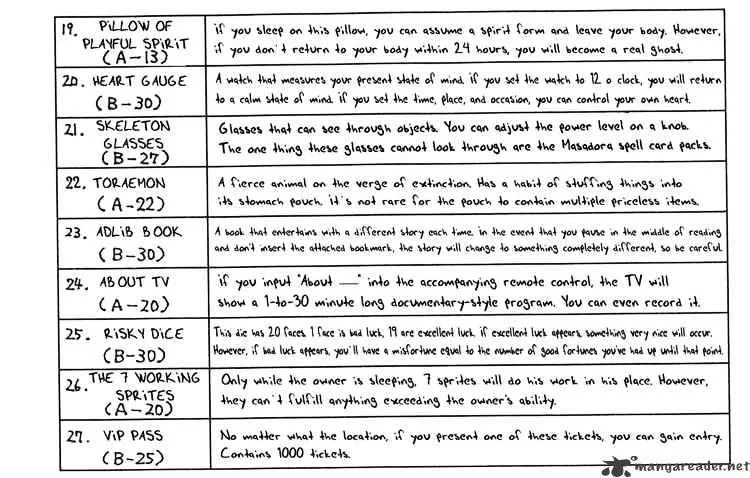 19. PILLOW OF
PLAYFUL SPIRIT
(A-13)
if you sleep on this pillow, you can assume a spirit form and leave your body. However,
if you don't return to your body within 24 hours, you will become a real ghost.
20. HEART GAUGE
(B-30)
A watch that measures your present state of mind. if you set the watch to 12 o clock, you will return
to a calm state of mind. if you set the time, place, and occasion, you can control your own heart.
21. SKELETON
GLASSES
(B-27)
Glasses that can see through objects. You can adjust the power level on a knob.
The one thing these glasses cannot look through are the Masadora spell card packs.
22. TORAEMON
(A-22)
A fierce animal on the verge of extinction. Has a habit of stuffing things into
its stomach pouch. it's not rare for the pouch to contain multiple priceless items.
23. ADLIB BOOK
(B-30)
A book that entertains with a different story each time. in the event that you pause in the middle of reading
and don't insert the attached bookmark, the story will change to something completely different, so be careful.
24. ABOUT TV
(A-20)
if you input "About —" into the accompanying remote control, the TV will
show a 1-to-30 minute long documentary-style program. You can even record it.
25. RISKY DICE
(B-30)
This die has 20 faces. 1 face is bad luck, 19 are excellent luck. if excellent luck appears, something very nice will occur.
However, if bad luck appears, you'll have a misfortune equal to the number of good fortunes you've had up until that point.
26. THE 7 WORKING
SPRITES
(A-20)
Only while the owner is sleeping, 7 sprites will do his work in his place. However,
they can't fulfill anything exceeding the owner's ability.
27. ViP PASS
(B-25)
No matter what the location, if you present one of these tickets, you can gain entry.
Contains 1000 tickets.
mangareader.net